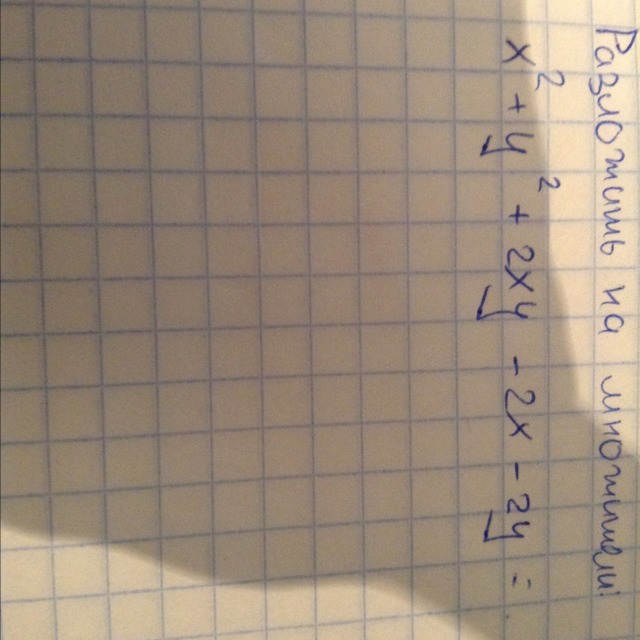 Разложить на множители
x² + y² + 2xy - 2x - 2y =